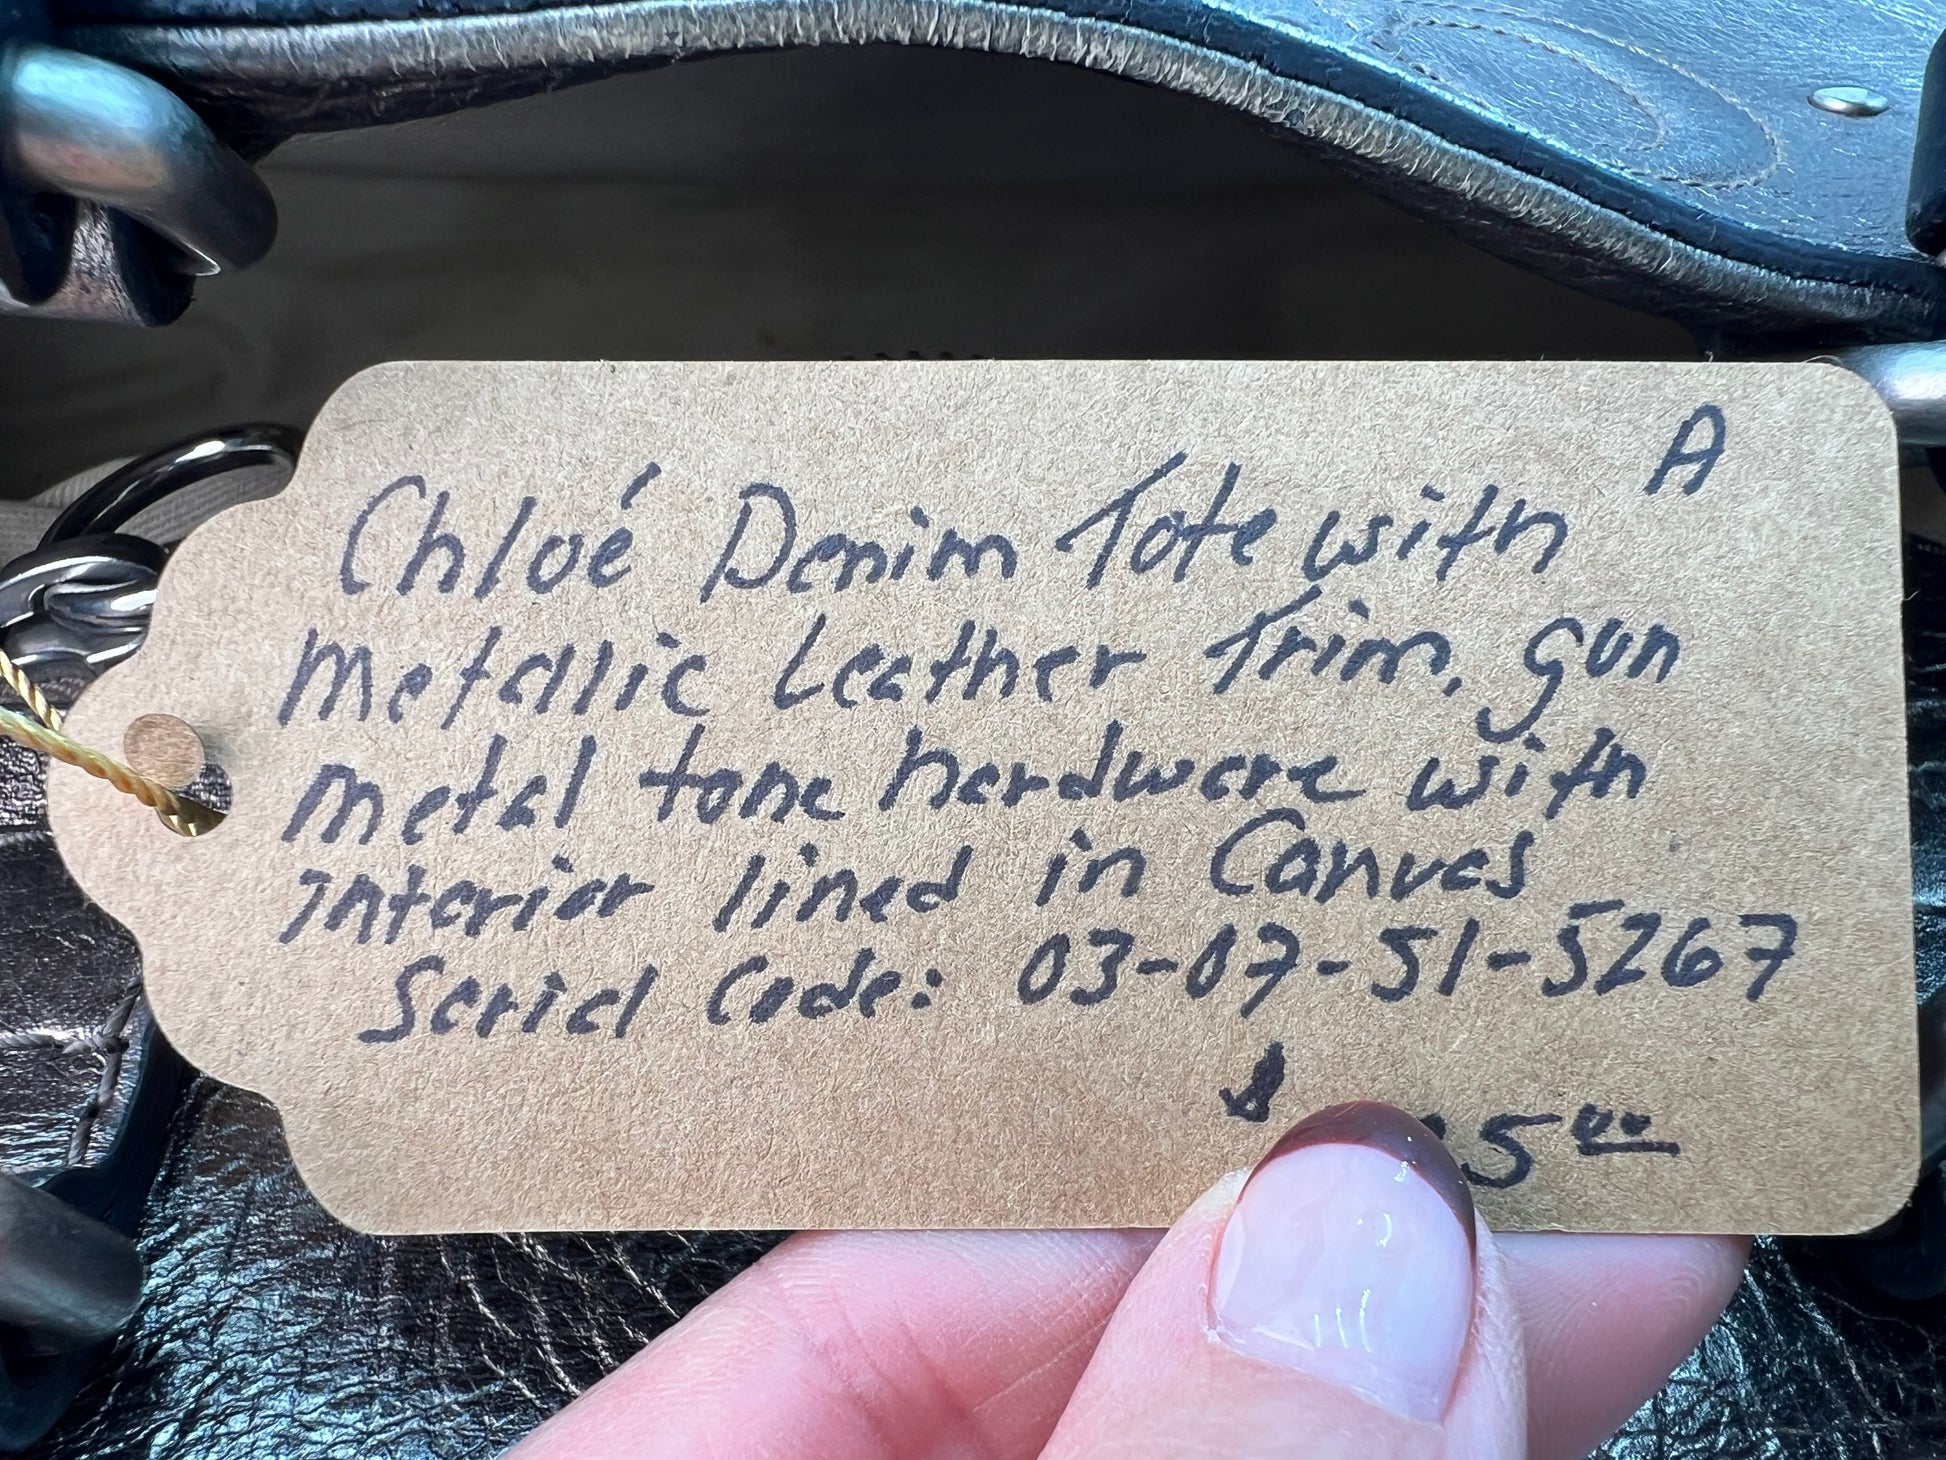 A
Chloé Denim Tote with
Metallic Leather Trim, gun
metal tone hardware with
Interior lined in Canvas
Serial Code: 03-07-51-5267
$ 5.00